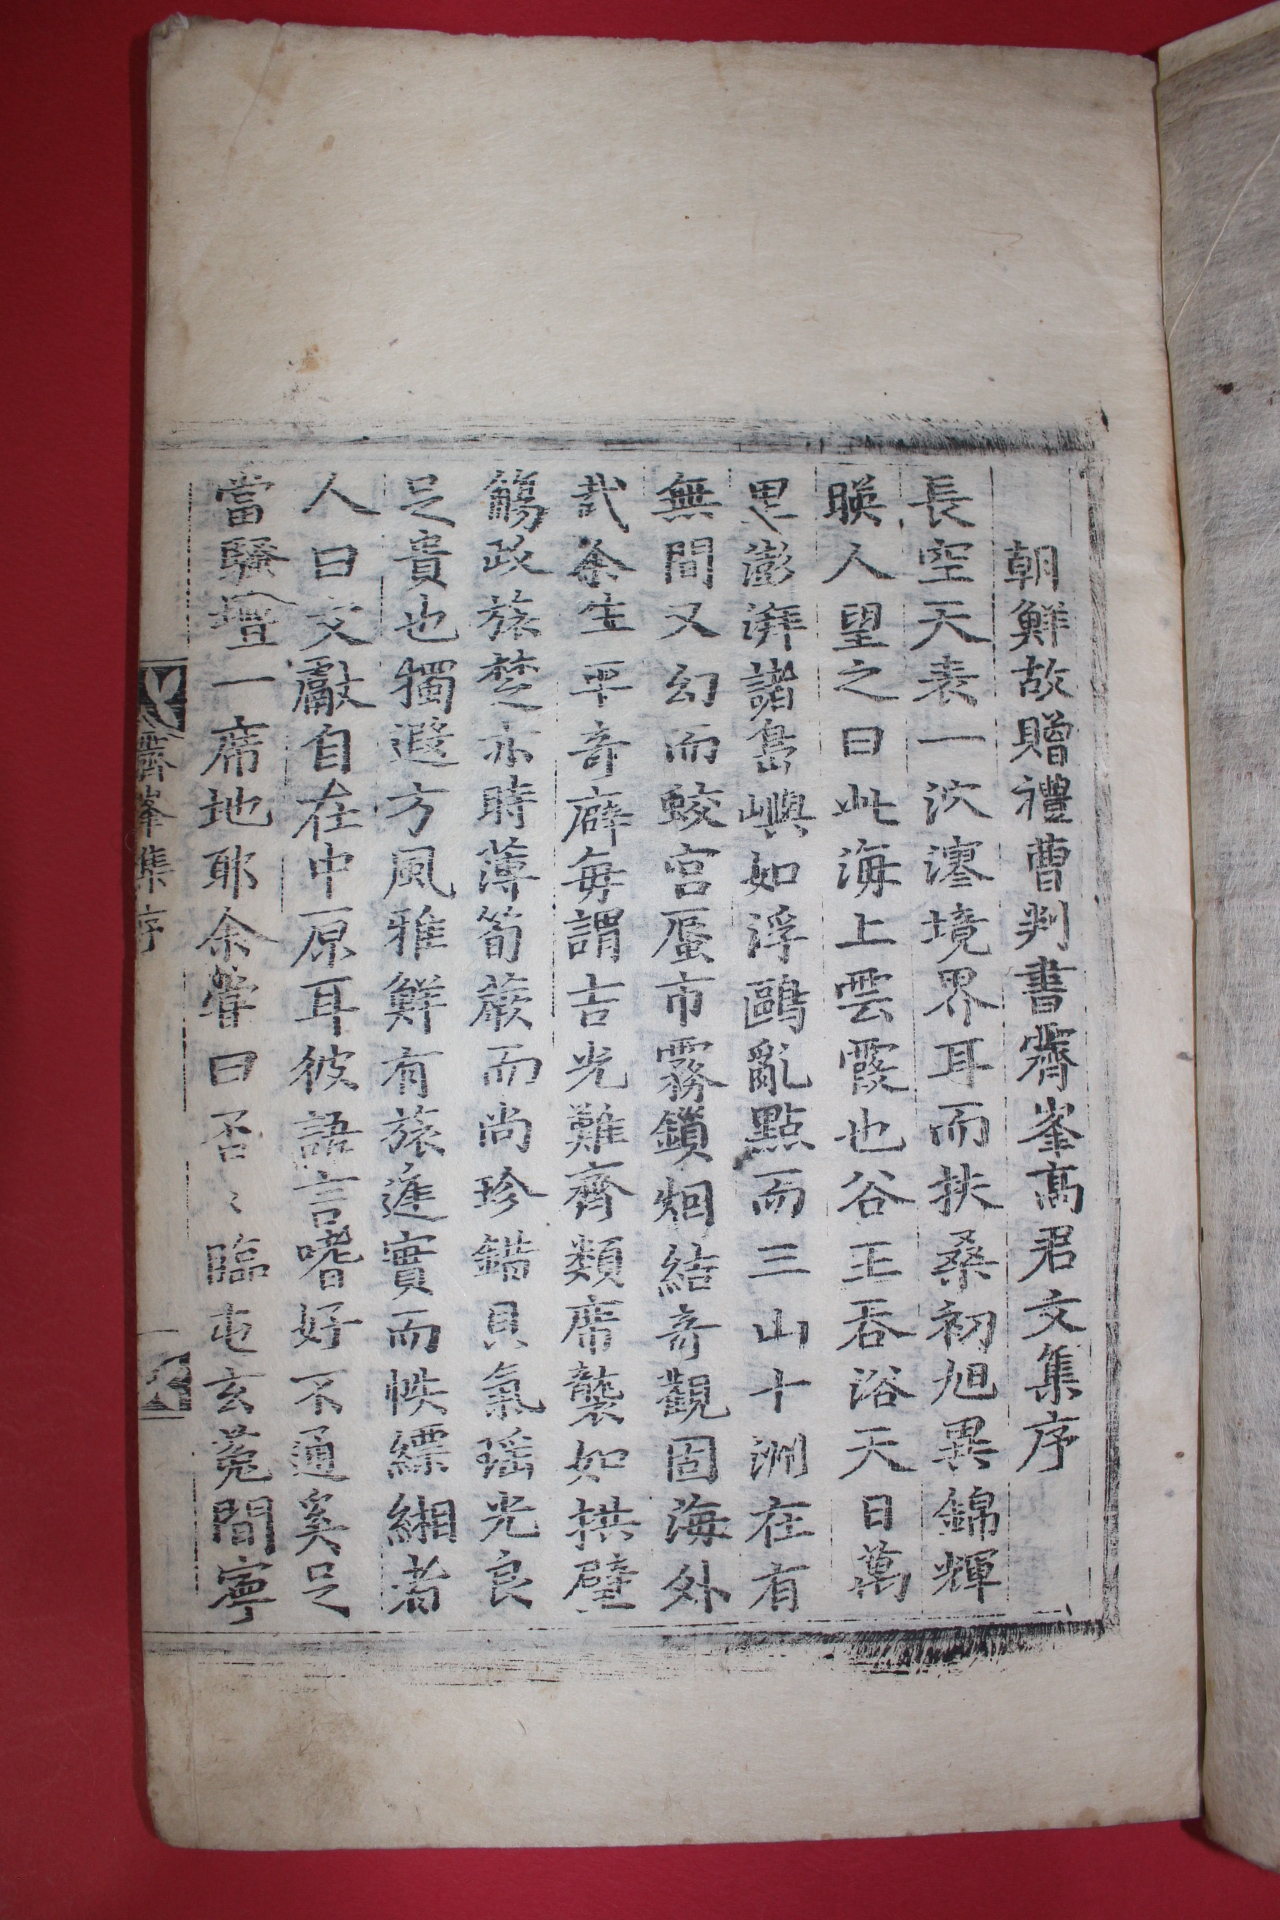 朝鮮故贈禮曹判書霽峯高君文集序
長空天表一泬㵳境界耳而扶桑初旭異錦輝
暎人望之曰此海上雲霞也谷王吞浴天日萬
思澎湃諸島嶼如浮鷗亂點而三山十洲在有
無間又幻而蛟宮蜃市霧鎖烟結奇觀固海外
哉余生平奇癖每謂吉光難齊類席襲如拱璧
觴政旅楚亦時薄筍蕨而尚珍錯貝氣瑶光良
足貴也獨遐方風雅鮮有旅進實而悏縹緗者
人曰文獻自在中原耳彼語言嗜好不通奚足
當騷壇一席地耶余聳曰否〻臨屯玄菟間寧
霽峯集序
一